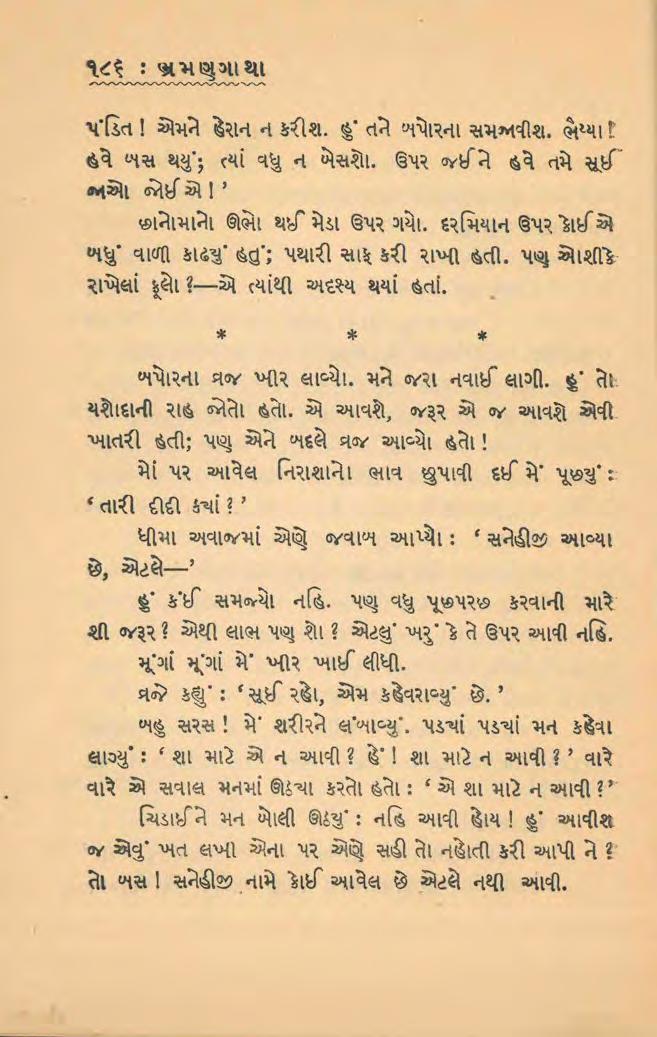 ૧૮૬ : ભ્રમણગાથા
પંડિત ! એમને હેરાન ન કરીશ. હું તને બપોરના સમજાવીશ. ભૈય્યા !
હવે બસ થયું; ત્યાં વધુ ન બેસશો. ઉપર જઈને હવે તમે સૂઈ
જાઓ જોઈએ ! ’
છાનોમાનો ઊભો થઈ મેડા ઉપર ગયો. દરમિયાન ઉપર કોઈએ
બધું વાળી કાઢ્યું હતું; પથારી સાફ કરી રાખી હતી. પણ ઓશીકે
રાખેલાં ફૂલો ?—એ ત્યાંથી અદૃસ્ય થયાં હતાં.
* * *
બપોરના વ્રજ ખીર લાવ્યો. મને જરા નવાઈ લાગી. હું તો
યશોદાની રાહ જોતો હતો. એ આવશે, જરૂર એ જ આવશે એવી
ખાતરી હતી; પણ એને બદલે વ્રજ આવ્યો હતો !
મોં પર આવેલ નિરાશાનો ભાવ છુપાવી દઈ મેં પૂછ્યું :
‘ તારી દીદી ક્યાં ? ’
ધીમા અવાજમાં એણે જવાબ આપ્યો : ‘ સનેહીજી આવ્યા
છે, એટલે—’
હું કંઈ સમજ્યો નહિ. પણ વધુ પૂછપરછ કરવાની મારે
શી જરૂર ? એથી લાભ પણ શો ? એટલું ખરું કે તે ઉપર આવી નહિ.
મૂંગાં મૂંગાં મેં ખીર ખાઈ લીધી.
વ્રજે કહ્યું : ‘ સૂઈ રહો, એમ કહેવરાવ્યું છે. ’
બહુ સરસ ! મેં શરીરને લંબાવ્યું. પડ્યાં પડ્યાં મન કહેવા
લાગ્યું : ‘ શા માટે એ ન આવી ? હેં ! શા માટે ન આવી ? ’ વારે
વારે એ સવાલ મનમાં ઊઠ્યા કરતો હતો : ‘ એ શા માટે ન આવી ? ’
ચિડાઈને મન બોલી ઊઠ્યું : નહિ આવી હોય ! હું આવીશ
જ એવું ખત લખી એના પર એણે સહી તો નહોતી કરી આપી ને ?
તો બસ ! સનેહીજી નામે કોઈ આવેલ છે એટલે નથી આવી.